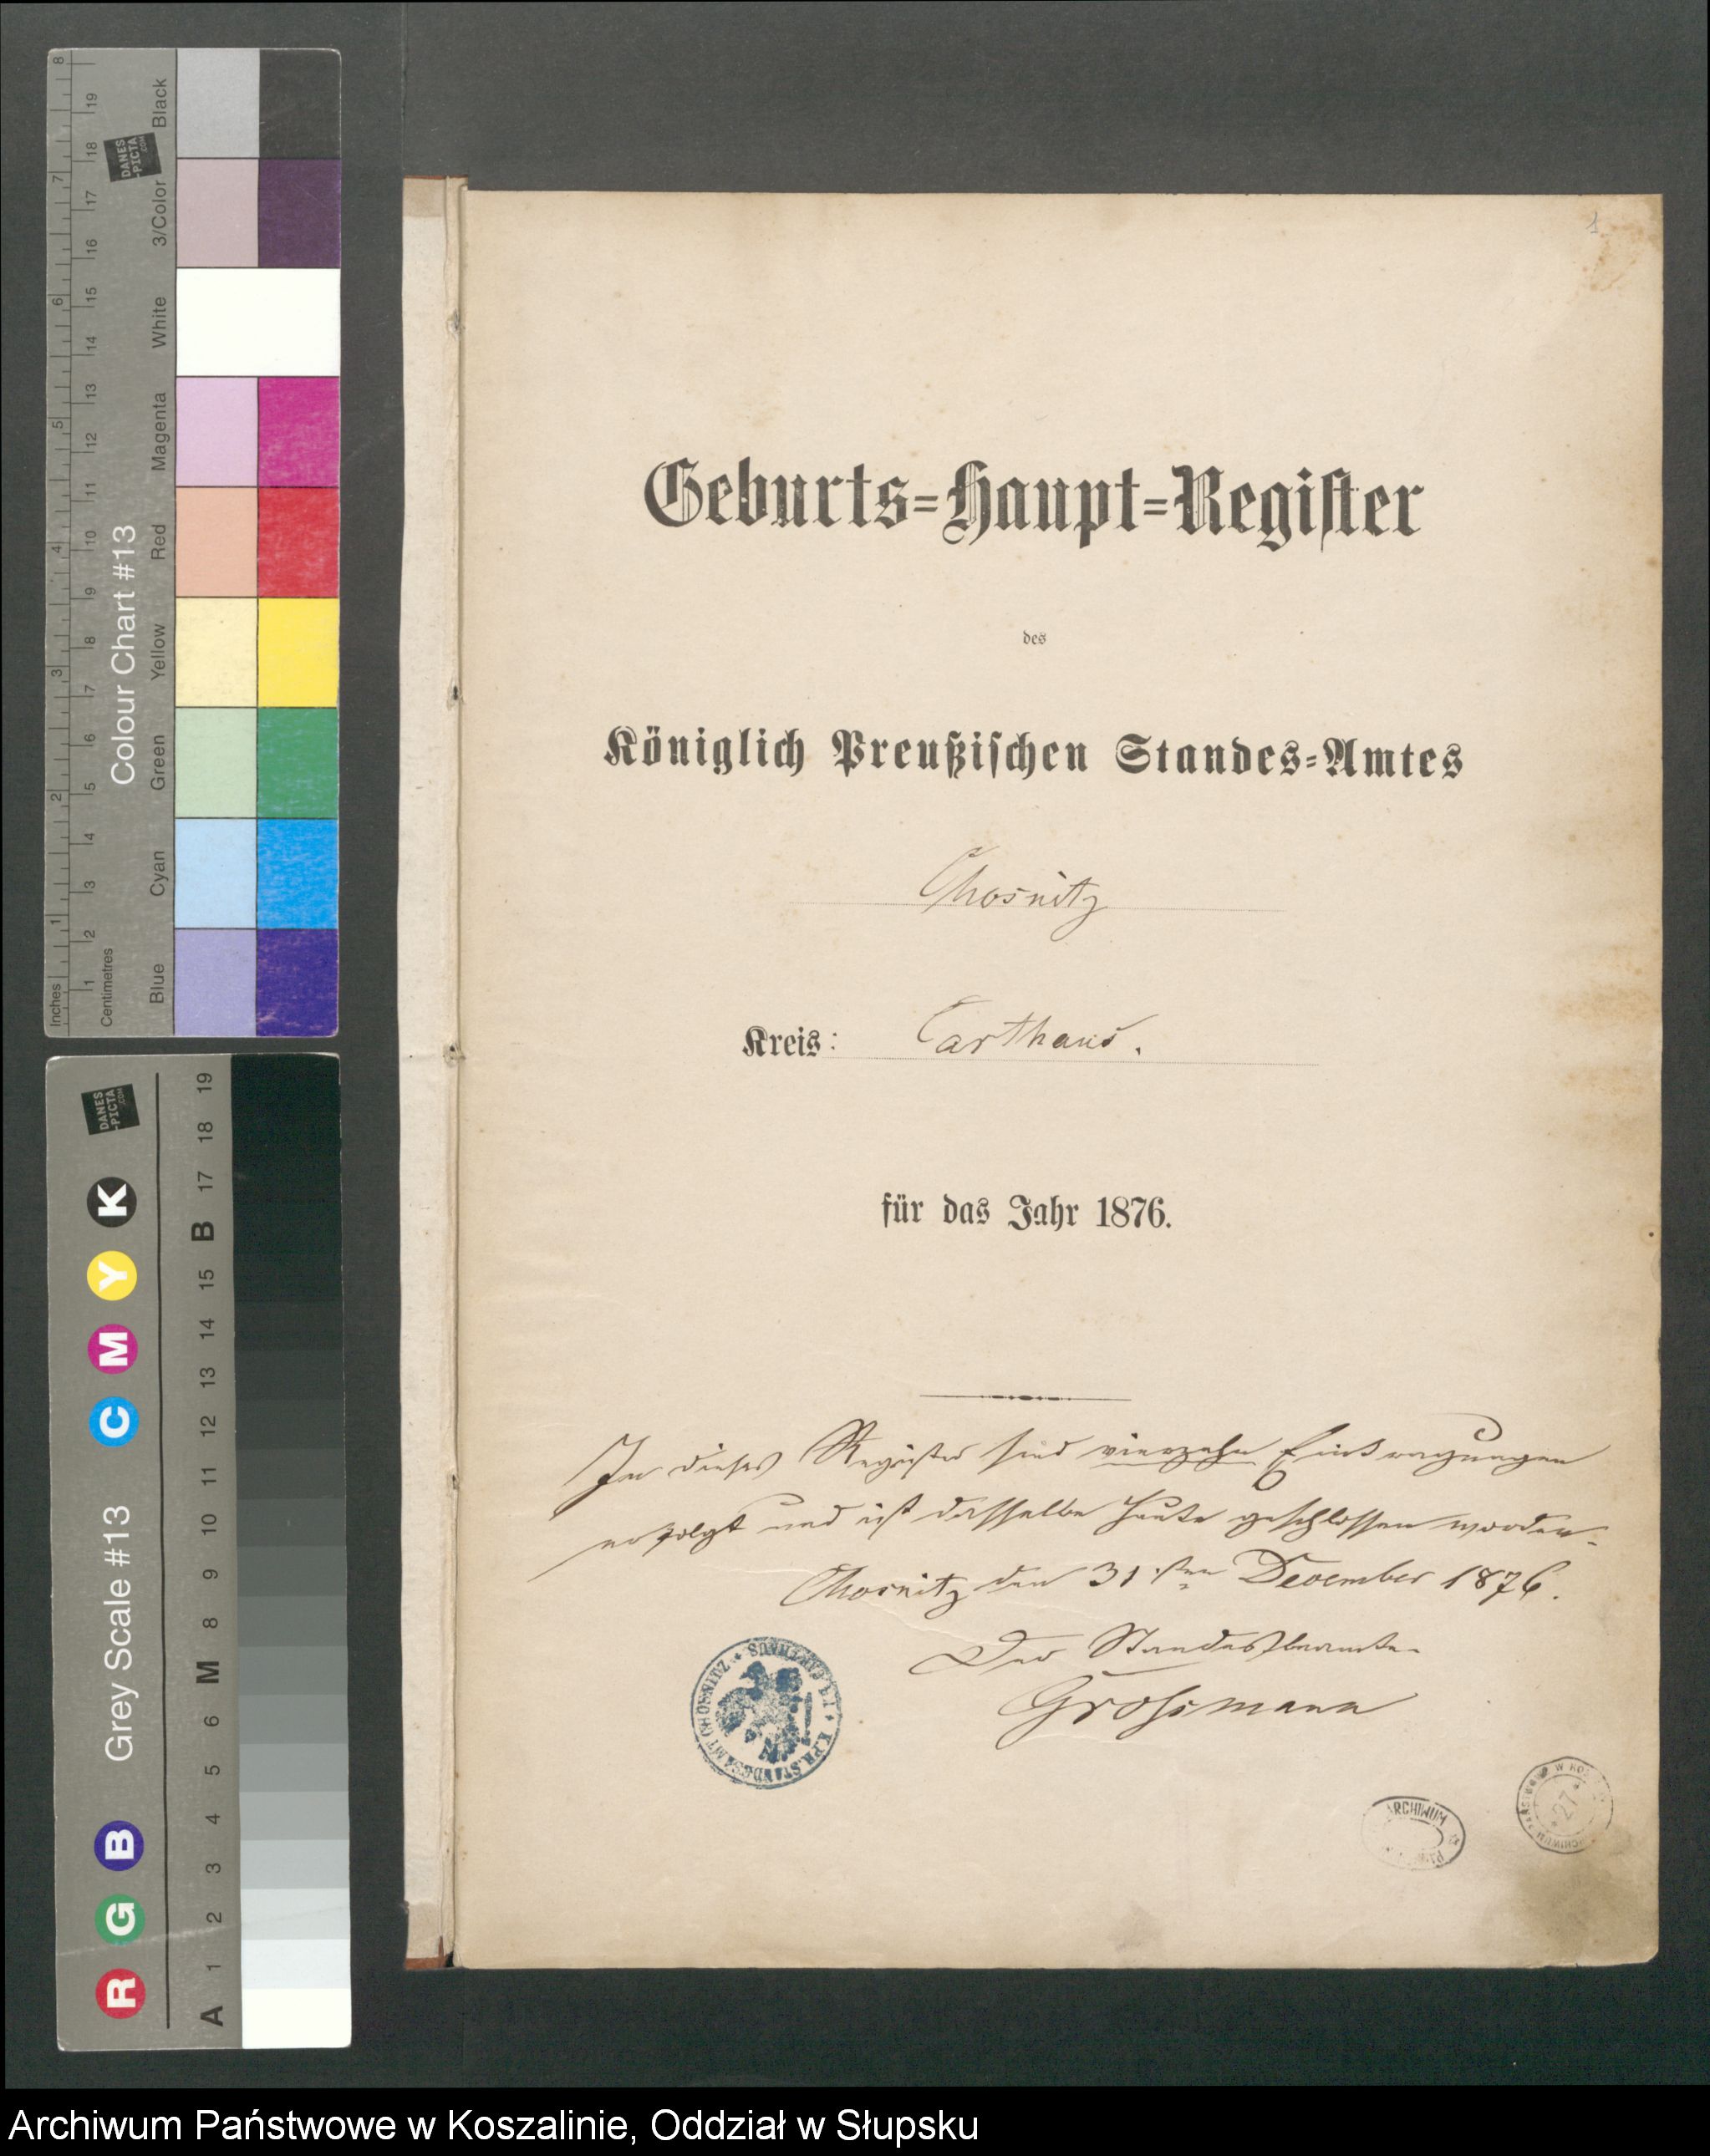 1
Geburts=Haupt=Register
des
Königlich Preußischen Standes=Amtes
Chosnitz
Kreis: Carthaus.
für das Jahr 1876.
In dieses Register sind vierzehn Eintragungen
erfolgt und ist dasselbe heute geschlossen worden.
Chosnitz den 31sten December 1876.
Der Standesbeamte
Grossmann
K.PR.STANDESAMT CHOSNITZ * KR. CARTHAUS
ARCHIWUM
27
Colour Chart #13
Black
3/Color
White
Magenta
Red
Yellow
Green
Cyan
Blue
Inches 1 2 3 4 5 6 7 8
Centimetres 1 2 3 4 5 6 7 8 9 10 11 12 13 14 15 16 17 18 19
DANES
-PICTA
.COM
Grey Scale #13
R G B C M Y K
A 1 2 3 4 5 6 M 8 9 10 11 12 13 14 15 B 17 18 19
DANES
-PICTA
.COM
Archiwum Państwowe w Koszalinie, Oddział w Słupsku